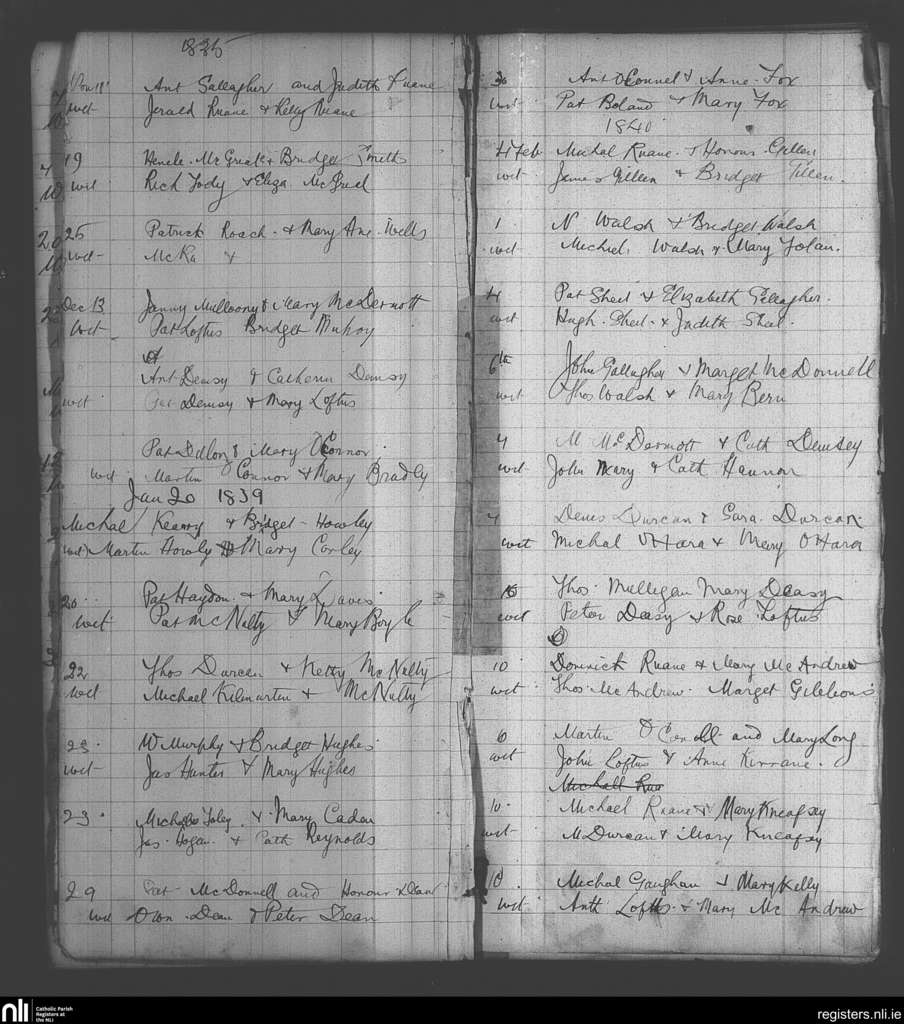 1835
Nov 18 Ant Gallagher and Judith Ruane
wit Jerald Ruane & Kelly Ruane
19 & Bridget Smith
wit Rich Jody & Eliza
25 Patrick Roach & Mary Ane Wells
wit McRa &
Dec 13 Janny Mullowny & Mary McDermott
Wit Pat Loftus Bridget
Ant Demsy & Catherin Demsy
wit Pat Demsy & Mary Loftus
Pat Dillon & Mary OConnor
wit Martin Connor & Mary Bradly
Jan 20 1839
Michal Kearny & Bridget Howley
wit Martin Howly Mary Corley
20 Pat Haydon & Mary Davis
wit Pat McNulty & Mary Boyle
22 Thos Durcan & Netty McNulty
wit Michael Kilmartin & McNulty
23 W Murphy & Bridget Hughes
wit Jas Hunter & Mary Hughes
23 Foley & Mary Caden
Jas Hogan & Cath Reynolds
29 Pat McDonnell and Honour Dean
wit Own Dean & Peter Dean
Ant OConnel & Anne Fox
wit Pat Boland & Mary Fox
1840
4 Feb Michal Ruane & Honour Gillen
wit James Gilleen & Bridget Gilleen
1 N Walsh & Bridget Walsh
wit Michiel Walsh & Mary Folan
4 Pat Sheil & Elizabeth Gellagher
wit Hugh Sheil & Judith Sheil
6th John Gallagher & Marget McDonnell
wit Thos Walsh & Mary Bern
4 M McDermott & Cath Demsey
wit John Mary & Cath Hannon
4 Denis Durcan & Sara Durcan
wit Michal OHara & Mary OHara
Thos Mulligan Mary Deasy
wit Peter Deasy & Rose Loftus
10 Dominick Ruane & Mary McAndrew
wit Thos McAndrew Marget Gibbons
6 Martin and Mary Long
wit John Loftus & Anne Kirrane
Michall Rua
10 Michael Ruane & Mary Kneafsy
wit M Durcan & Mary Kneafsy
10 Michal Gaughan & Mary Kelly
wit Anth Loftus & Mary Mc Andrew
nli Catholic Parish
Registers at
the NLI
registers.nli.ie